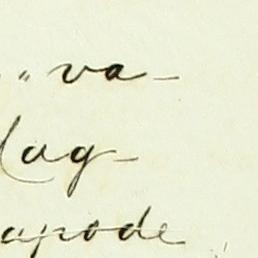 „ va-
lag-
apode